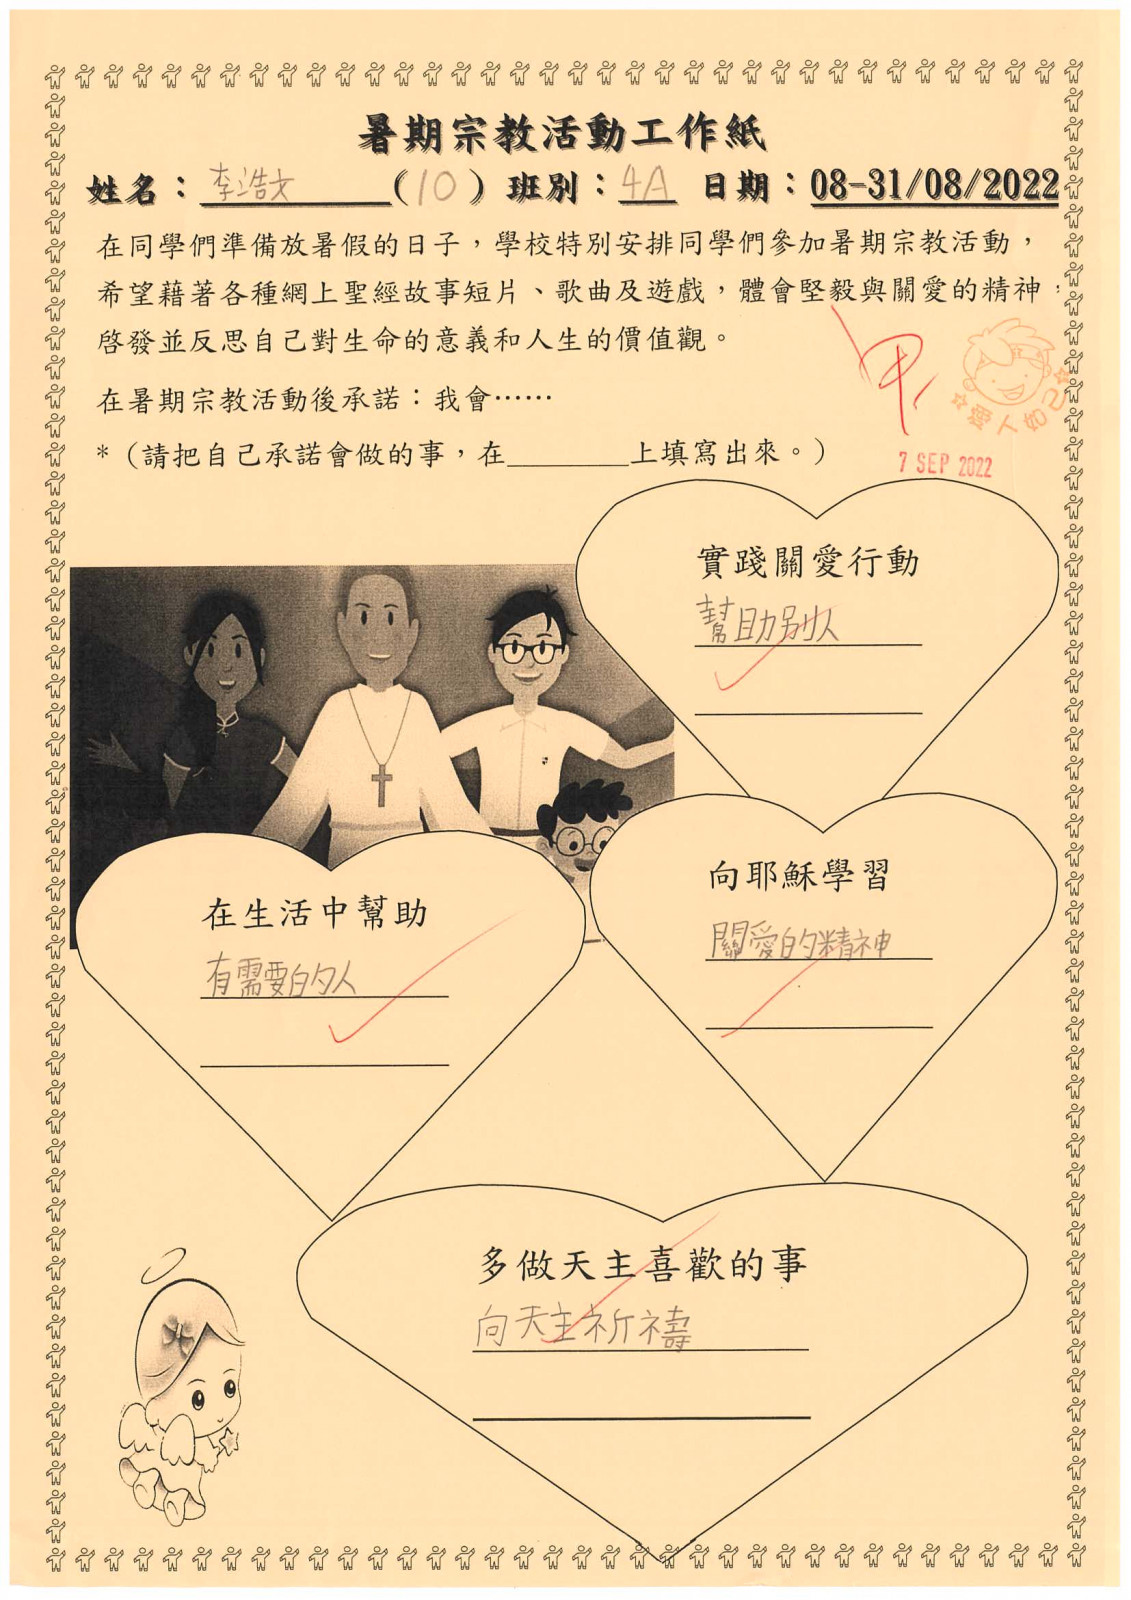 暑期宗教活動工作紙
姓名：李浩文（10）班別：4A 日期：08-31/08/2022
在同學們準備放暑假的日子，學校特別安排同學們參加暑期宗教活動，
希望藉著各種網上聖經故事短片、歌曲及遊戲，體會堅毅與關愛的精神，
啓發並反思自己對生命的意義和人生的價值觀。
在暑期宗教活動後承諾：我會……
*（請把自己承諾會做的事，在________上填寫出來。）
甲
愛人如己
7 SEP 2022
實踐關愛行動
幫助別人
向耶穌學習
關愛的精神
在生活中幫助
有需要的人
多做天主喜歡的事
向天主祈禱